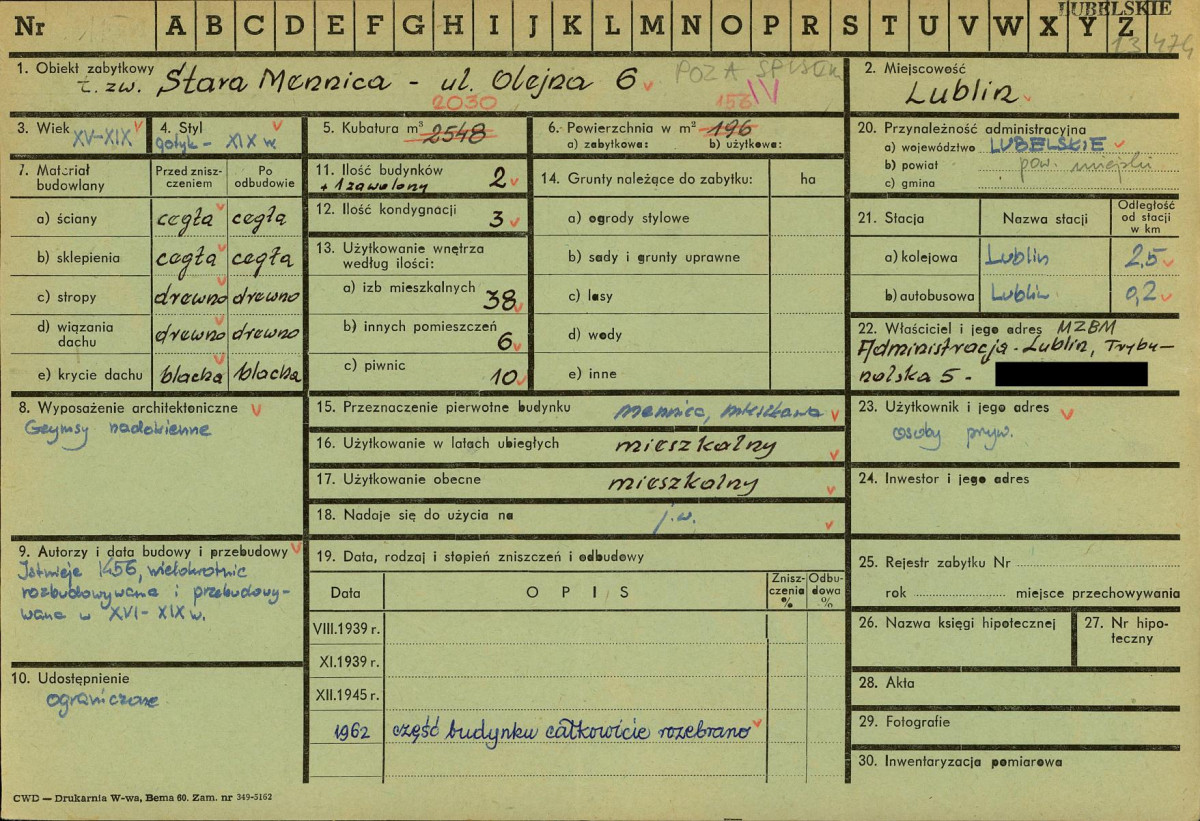 LUBELSKIE
Nr A B C D E F G H I J K L M N O P R S T U V W X Y Z
13 474
1. Obiekt zabytkowy
t. zw. Stara Mennica - ul. Olejna 6
POZA SPISEM
IV
2. Miejscowość
Lublin
3. Wiek
XV-XIX
4. Styl
gotyk - XIX w.
5. Kubatura m³ 2548
2030
6. Powierzchnia w m² 196
156
a) zabytkowa: b) użytkowa:
7. Materiał budowlany
Przed zniszczeniem
Po odbudowie
a) ściany cegła cegła
b) sklepienia cegła cegła
c) stropy drewno drewno
d) wiązania dachu drewno drewno
e) krycie dachu blacha blacha
8. Wyposażenie architektoniczne
Gzymsy nadokienne
9. Autorzy i data budowy i przebudowy
Istnieje 1456, wielokrotnie
rozbudowywana i przebudowy-
wana w XVI-XIX w.
10. Udostępnienie
ograniczone
11. Ilość budynków 2
+ 1 zawalony
12. Ilość kondygnacji 3
13. Użytkowanie wnętrza
według ilości:
a) izb mieszkalnych 38
b) innych pomieszczeń 6
c) piwnic 10
14. Grunty należące do zabytku: ha
a) ogrody stylowe
b) sady i grunty uprawne
c) lasy
d) wody
e) inne
15. Przeznaczenie pierwotne budynku mennica, mieszkawa
16. Użytkowanie w latach ubiegłych mieszkalny
17. Użytkowanie obecne mieszkalny
18. Nadaje się do użycia na j.w.
19. Data, rodzaj i stopień zniszczeń i odbudowy
Data OPIS Zniszczenia % Odbudowa %
VIII.1939 r.
XI.1939 r.
XII.1945 r.
1962 część budynku całkowicie rozebrano
20. Przynależność administracyjna
a) województwo LUBELSKIE
b) powiat pow. miejski
c) gmina
21. Stacja Nazwa stacji Odległość od stacji w km
a) kolejowa Lublin 2,5
b) autobusowa Lublin 0,2
22. Właściciel i jego adres MZBM
Administracja - Lublin, Trybu-
nalska 5 -
23. Użytkownik i jego adres
osoby pryw.
24. Inwestor i jego adres
25. Rejestr zabytku Nr
rok miejsce przechowywania
26. Nazwa księgi hipotecznej
27. Nr hipoteczny
28. Akta
29. Fotografie
30. Inwentaryzacja pomiarowa
CWD — Drukarnia W-wa, Bema 60. Zam. nr 349-5162